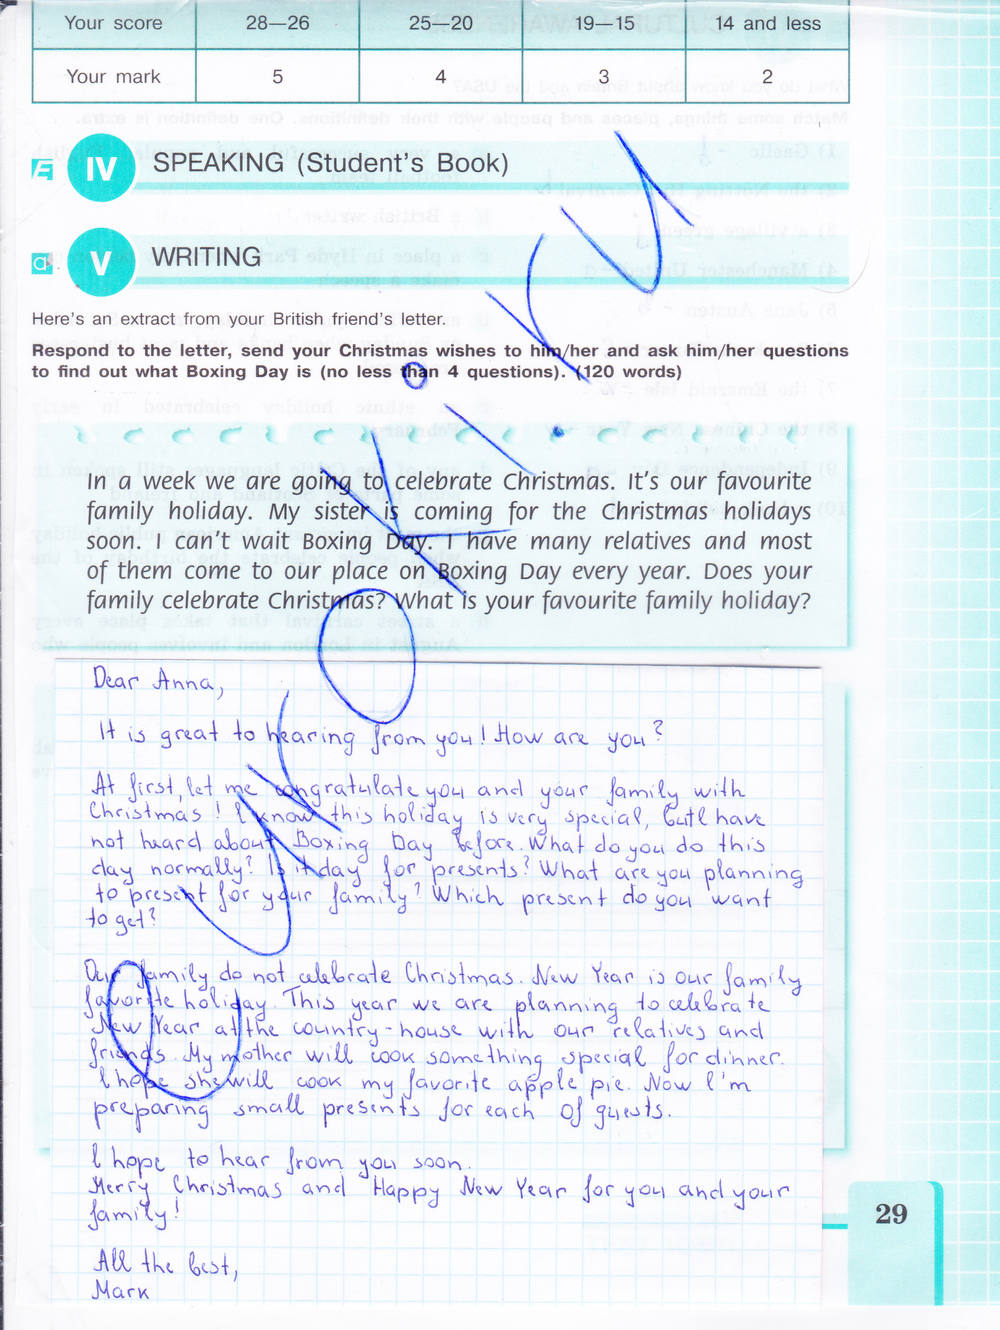 Your score 28—26 25—20 19—15 14 and less
Your mark 5 4 3 2
IV SPEAKING (Student's Book)
V WRITING
Here's an extract from your British friend's letter.
Respond to the letter, send your Christmas wishes to him/her and ask him/her questions
to find out what Boxing Day is (no less than 4 questions). (120 words)
In a week we are going to celebrate Christmas. It's our favourite
family holiday. My sister is coming for the Christmas holidays
soon. I can't wait Boxing Day. I have many relatives and most
of them come to our place on Boxing Day every year. Does your
family celebrate Christmas? What is your favourite family holiday?
Dear Anna,
It is great to hearing from you! How are you?
At first, let me congratulate you and your family with
Christmas! I know this holiday is very special, but I have
not heard about Boxing Day before. What do you do this
day normally? Is it day for presents? What are you planning
to present for your family? Which present do you want
to get?
Our family do not celebrate Christmas. New Year is our family
favorite holiday. This year we are planning to celebrate
New Year at the country-house with our relatives and
friends. My mother will cook something special for dinner.
I hope she will cook my favorite apple pie. Now I'm
preparing small presents for each of guests.
I hope to hear from you soon.
Merry Christmas and Happy New Year for you and your
family!
All the best,
Mark
29